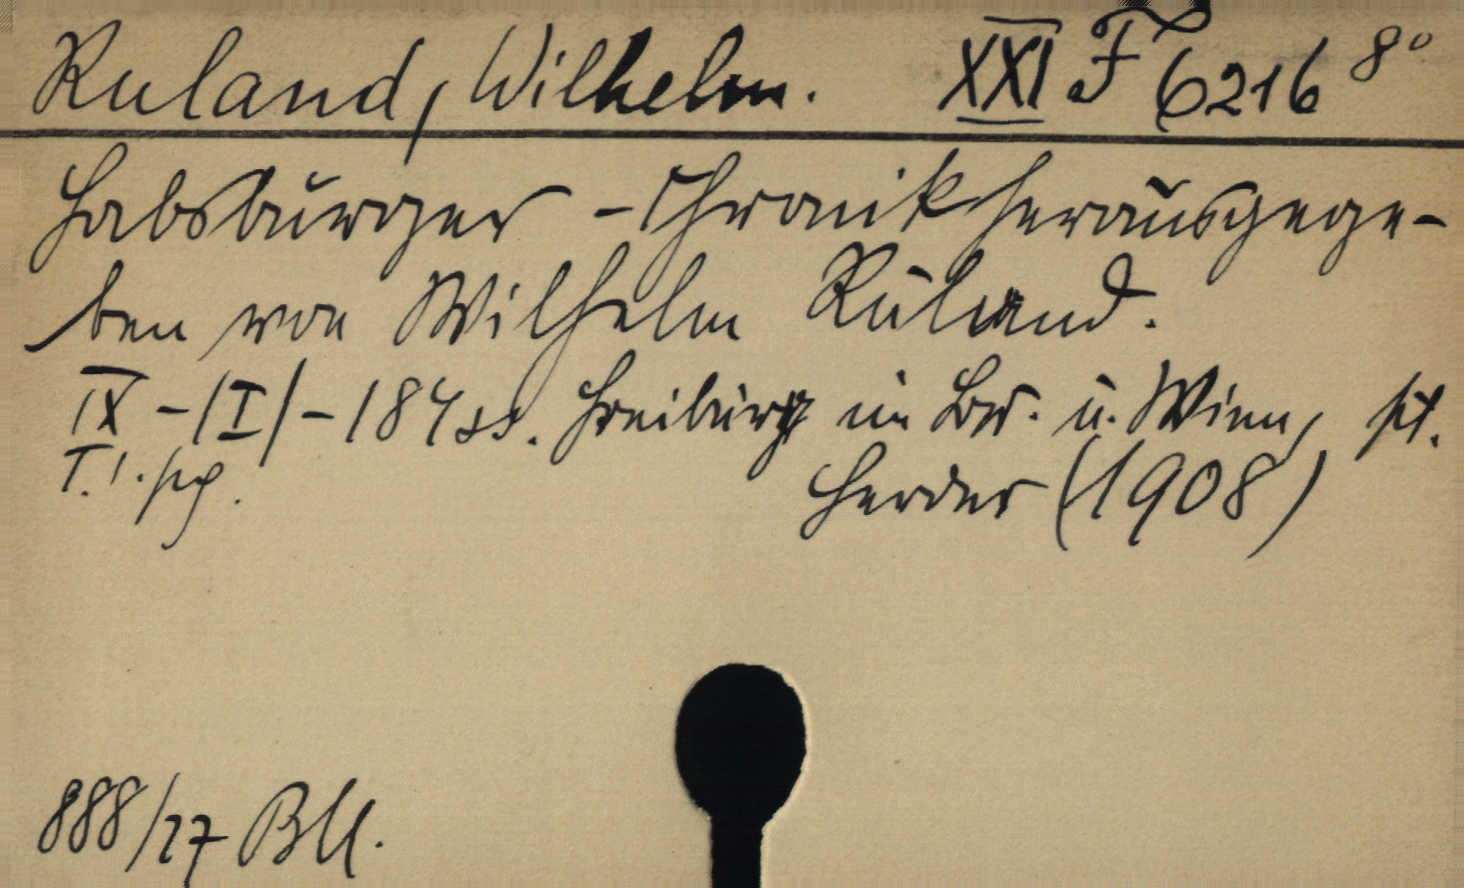 Ruland, Wilhelm. XXI F 6216 8°
Habsburger-Chronik herausgege-
ben von Wilhelm Ruland.
IX-(I)-184 ss. Freiburg im Br. u. Wien,
T.1.
Herder (1908)
888/27 Bll.